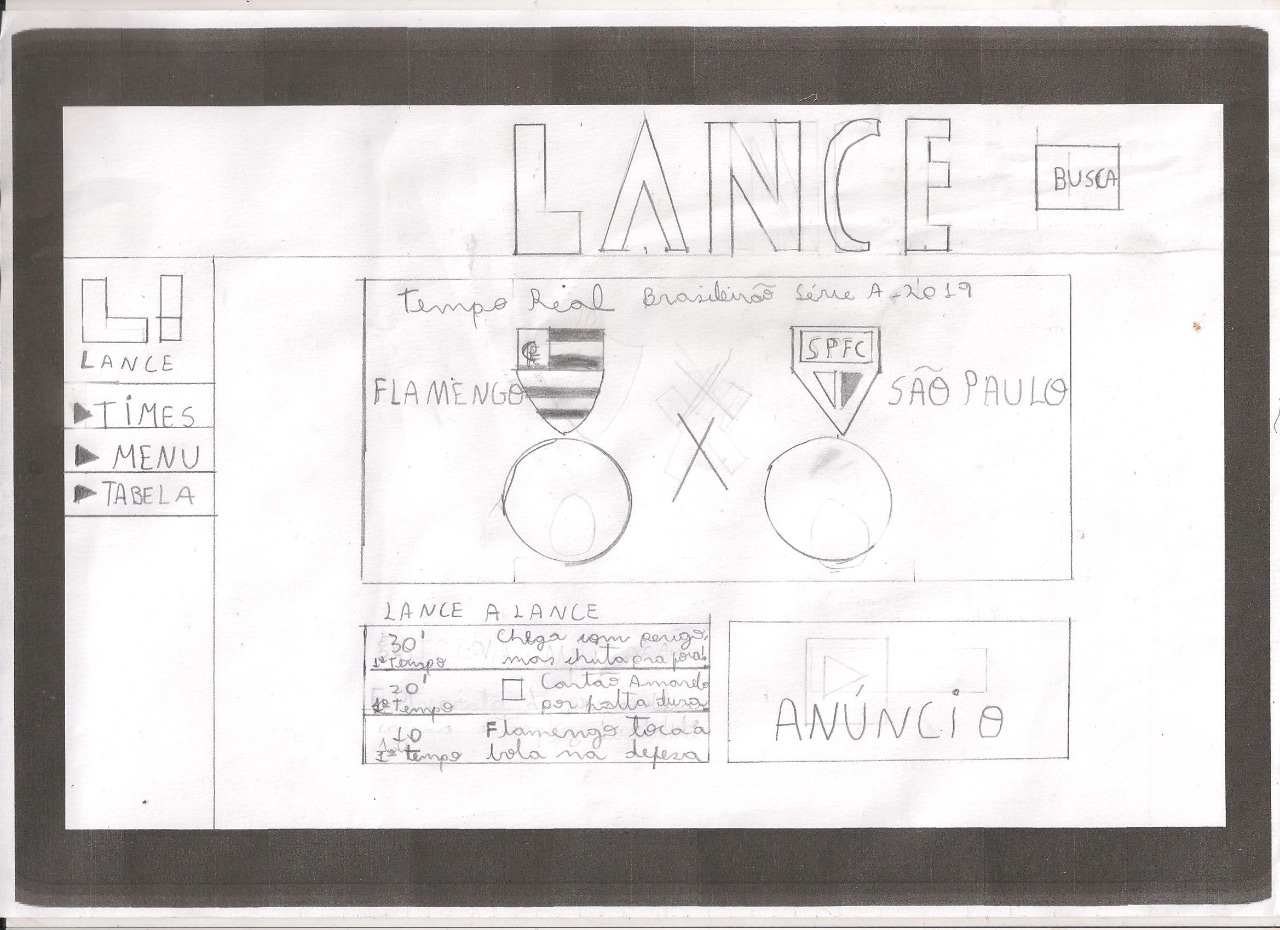 LANCE
BUSCA
L!
LANCE
TIMES
MENU
TABELA
Tempo Real Brasileirão Série A - 2019
FLAMENGO
CRF
X
SPFC
SÃO PAULO
LANCE A LANCE
30'
1º Tempo
Chega com perigo,
mas chuta pra fora!
20'
1º Tempo
Cartão Amarelo
por falta dura
10
1º tempo
Flamengo toca a
bola na defesa
ANÚNCIO